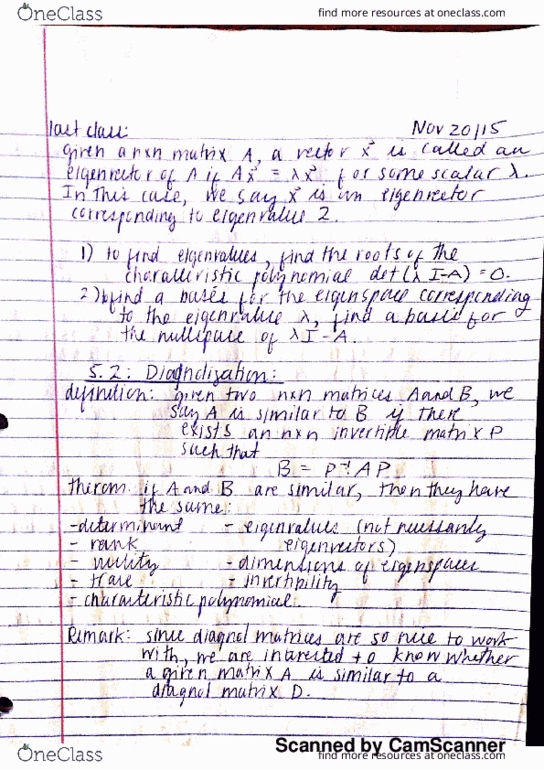 OneClass
find more resources at oneclass.com
last class:
Nov 20/15
given a nxn matrix A, a vector x⃗ is called an
eigenvector of A if Ax⃗ = λx⃗ for some scalar λ.
In this case, we say x⃗ is an eigenvector
corresponding to eigenvalue 2.
1) to find eigenvalues, find the roots of the
characteristic polynomial det(λI-A) = 0.
2) find a bases for the eigenspace corresponding
to the eigenvalue λ, find a basis for
the nullspace of λI-A.
5.2: Diagnolization:
definition: given two nxn matrices A and B, we
say A is similar to B if there
exists an nxn invertible matrix P
such that
B = P⁻¹AP
therom: if A and B are similar, then they have
the same:
-determinant - eigenvalues (not necessarily
- rank eigenvectors)
- nullity - dimensions of eigenspaces
- trace - invertibility
- characteristic polynomial.
Remark: since diagnol matrices are so nice to work
with, we are interested to know whether
a given matrix A is similar to a
diagnol matrix D.
Scanned by CamScanner
OneClass
find more resources at oneclass.com